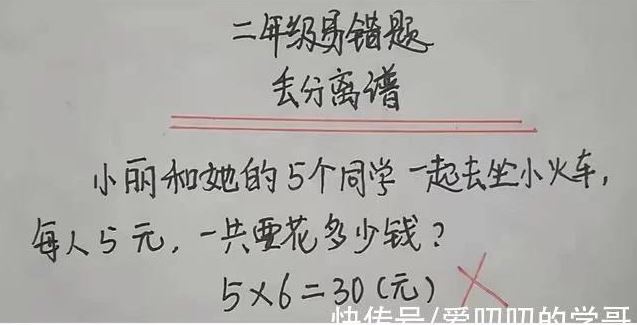 二年级易错题
丢分离谱
小丽和她的5个同学一起去坐小火车,
每人5元,一共要花多少钱?
5×6=30(元)
快传号/爱叨叨的学哥